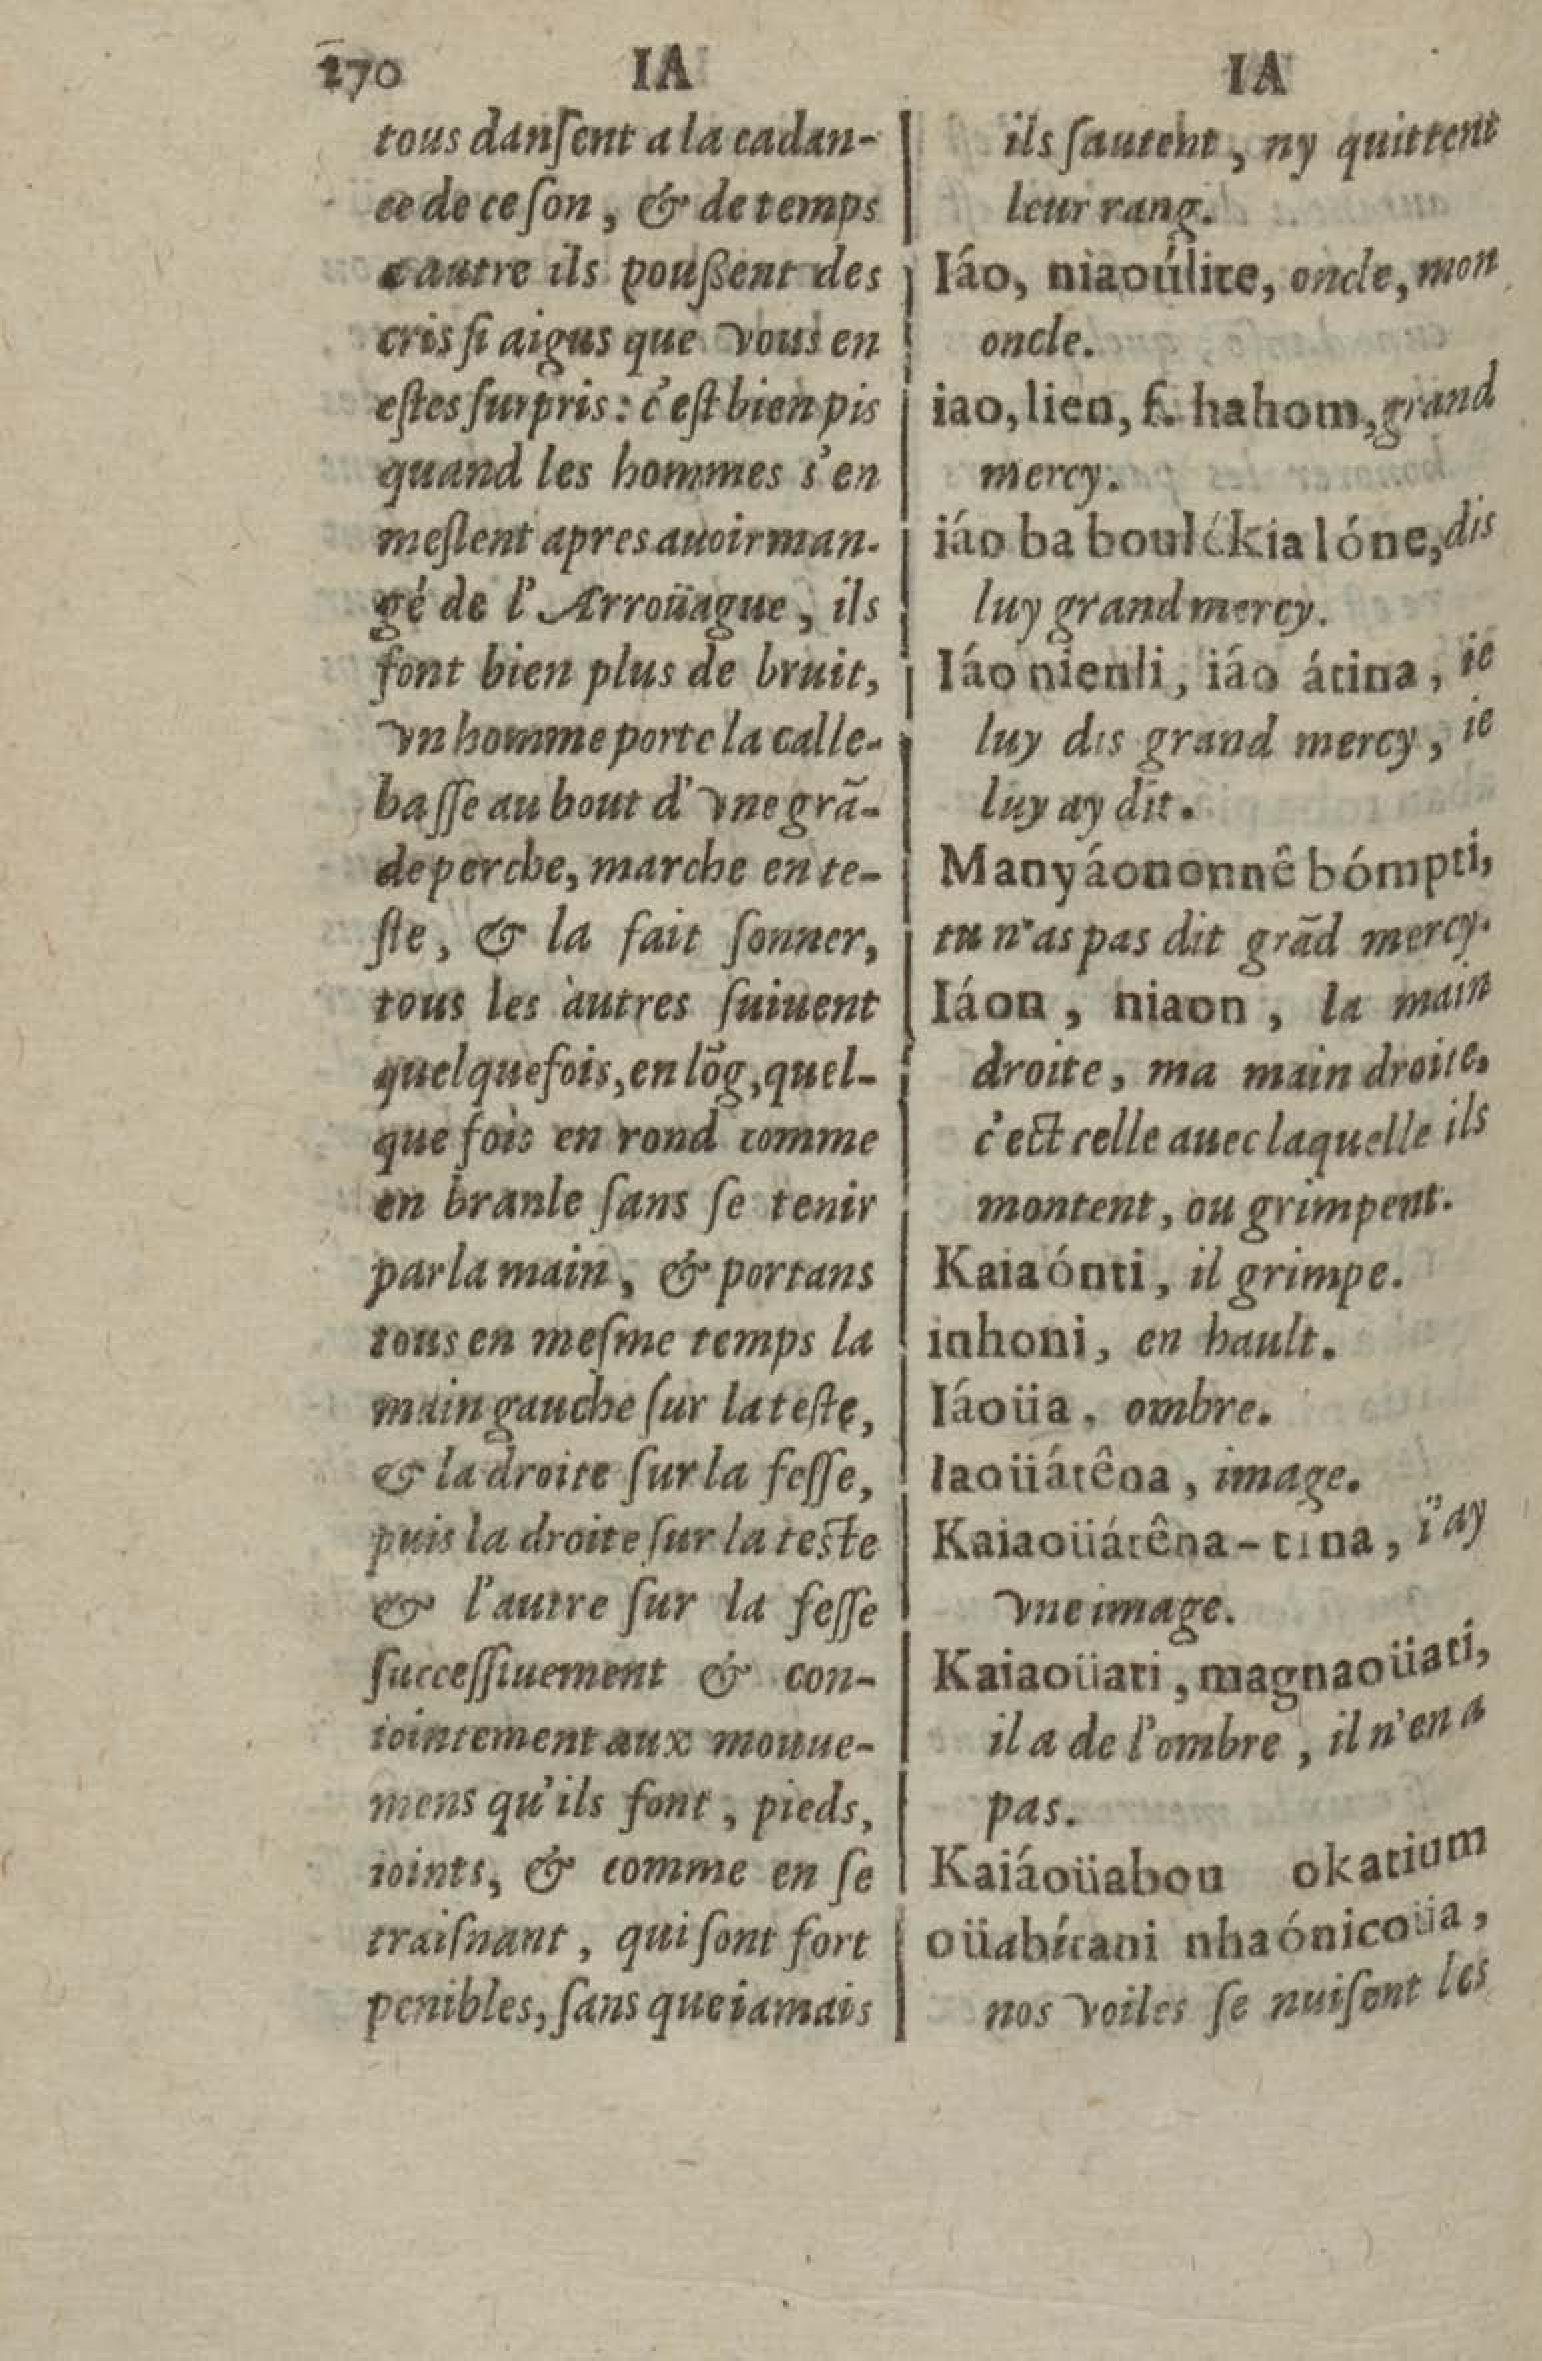 270 IA IA
tous danſent a la cadan-
ce de ce ſon, & de temps
a autre ils pouſsent des
cris ſi aigus que vous en
eſtes ſurpris : c'eſt bien pis
quand les hommes s'en
meſlent apres auoir man-
gé de l'Arroüague, ils
font bien plus de bruit,
vn homme porte la calle-
baſſe au bout d'vne grã-
de perche, marche en te-
ſte, & la fait ſonner,
tous les autres ſuiuent
quelquefois, en lõg, quel-
que fois en rond comme
en branle ſans ſe tenir
par la main, & portans
tous en meſme temps la
main gauche ſur la teſte,
& la droite ſur la feſſe,
puis la droite ſur la teſte
& l'autre ſur la feſſe
ſucceſſiuement & con-
iointement aux mouue-
mens qu'ils font, pieds,
ioints, & comme en ſe
traiſnant, qui ſont fort
penibles, ſans que iamais
ils ſautent, ny quittent
leur rang.
Iáo, niaoúlite, oncle, mon
oncle.
iao, lien, f. hahom, grand
mercy.
iáo ba boulékia lóne, dis
luy grand mercy.
Iáo nienli, iáo átina, ie
luy dis grand mercy, ie
luy ay dit.
Manyáononnê bómpti,
tu n'as pas dit grãd mercy.
Iáon, niaon, la main
droite, ma main droite,
c'eſt celle auec laquelle ils
montent, ou grimpent.
Kaiaónti, il grimpe.
inhoni, en hault.
Iáoüa, ombre.
Iaoüátêna, image.
Kaiaoüátêna-tina, i'ay
vne image.
Kaiaoüati, magnaoüati,
il a de l'ombre, il n'en a
pas.
Kaiáoüabou okatium
oüabítani nhaónicoüa,
nos voiles ſe nuiſent les